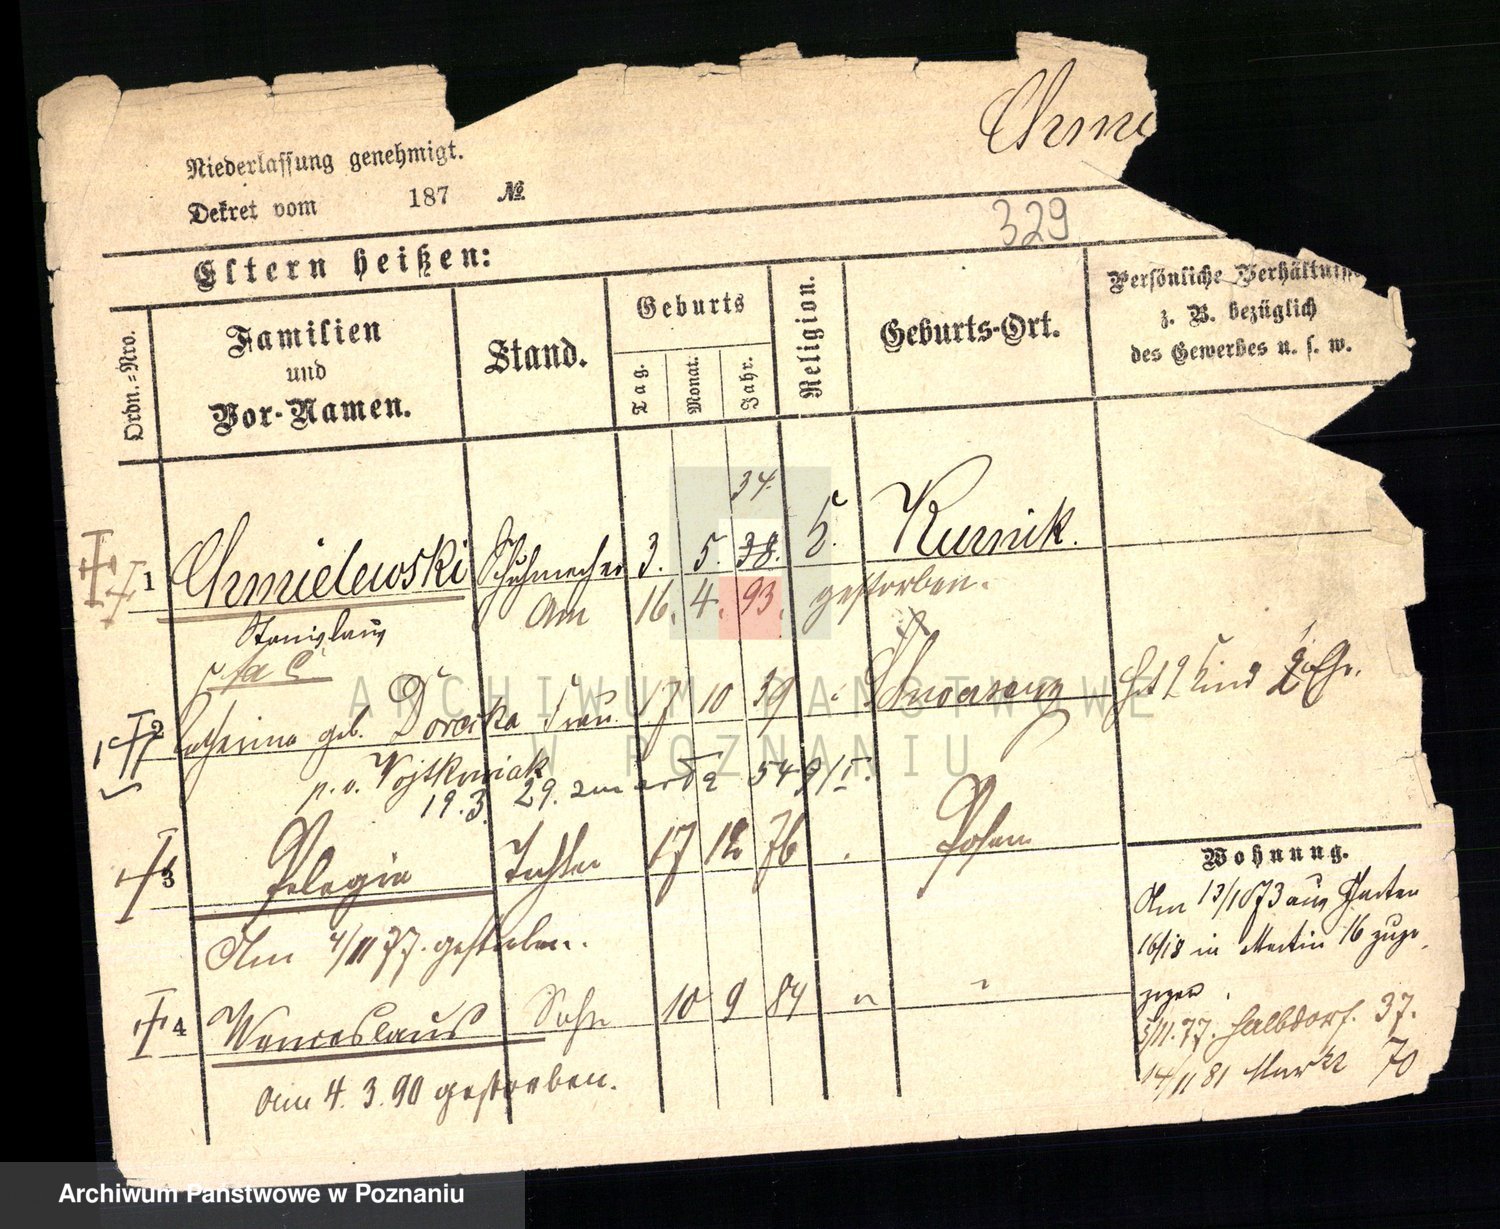 Chmie
Niederlassung genehmigt.
Dekret vom 187 №
329
Eltern heißen:
Ordn.=Nro.
Familien
und
Vor-Namen.
Stand.
Geburts
Tag.
Monat.
Jahr.
Religion.
Geburts-Ort.
Persönliche Verhältnisse
z. B. bezüglich
des Gewerbes u. s. w.
34.
1 Chmielewski Schuhmacher 3. 5. 38. k. Kurnik.
Am 16. 4. 93. gestorben.
Stanislaus
2 Catharina geb. Frau 17 10 39
hat Kind 2 Ehe.
p. v. Wojtkowiak
19.3.
3 Pelagia Tochter 17 12 76 Posen
Am 4/11 77. gestorben.
4 Wenceslaus Sohn 10 9 84 " "
Am 4. 3. 90 gestorben.
Wohnung.
Am 13/1073 aus
16/18 in Martin 16 zuge-
zogen.
5/11.77. Halbdorf. 37.
14/11 81 Markt 70
ARCHIWUM PAŃSTWOWE
W POZNANIU
Archiwum Państwowe w Poznaniu